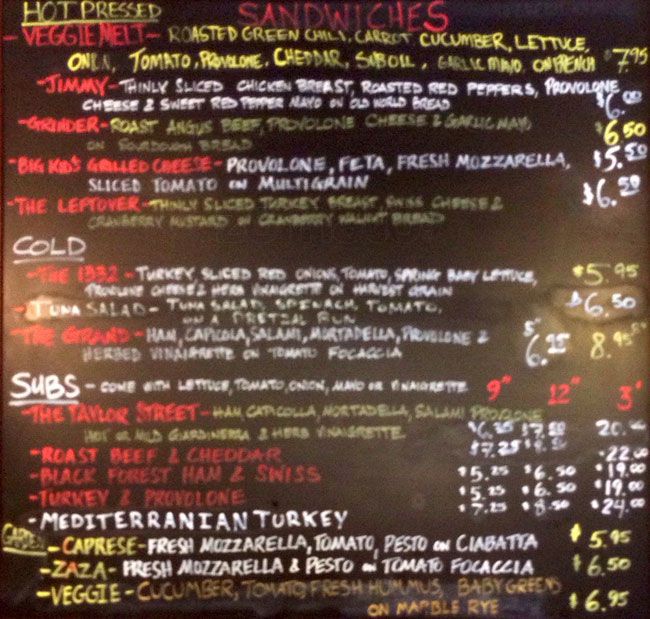 HOT PRESSED SANDWICHES
- VEGGIE MELT - ROASTED GREEN CHILI, CARROT CUCUMBER, LETTUCE,
TOMATO, PROVOLONE, CHEDDAR, GARLIC MAYO, ON FRENCH $7.95
- JIMMY - THINLY SLICED CHICKEN BREAST, ROASTED RED PEPPERS, PROVOLONE
CHEESE & SWEET RED PEPPER MAYO ON OLD WORLD BREAD $6.00
- GRINDER - ROAST ANGUS BEEF, PROVOLONE CHEESE & GARLIC MAYO
ON SOURDOUGH BREAD $6.50
- BIG KID'S GRILLED CHEESE - PROVOLONE, FETA, FRESH MOZZARELLA, $5.50
SLICED TOMATO ON MULTIGRAIN
$6.50
- THE LEFTOVER - THINLY SLICED TURKEY BREAST, SWISS CHEESE &
CRANBERRY MUSTARD ON CRANBERRY WALNUT BREAD
COLD
- THE 1932 - TURKEY, SLICED RED ONIONS, TOMATO, SPRING BABY LETTUCE, $5.95
PROVOLONE CHEESE & HERB VINAIGRETTE ON HARVEST GRAIN
- TUNA SALAD - TUNA SALAD, SPINACH, TOMATO, $6.50
ON A PRETZEL BUN
- THE GRAND - HAM, CAPICOLA, SALAMI, MORTADELLA, PROVOLONE &
HERBED VINAIGRETTE ON TOMATO FOCACCIA 6.25 8.95
SUBS - COME WITH LETTUCE, TOMATO, ONION, MAYO OR VINAIGRETTE 9" 12" 3'
- THE TAYLOR STREET - HAM, CAPICOLLA, MORTADELLA, SALAMI PROVOLONE
HOT OR MILD GIARDINERIA & HERB VINAIGRETTE
- ROAST BEEF & CHEDDAR $22.00
- BLACK FOREST HAM & SWISS $5.25 $6.50 $19.00
- TURKEY & PROVOLONE $5.25 $6.50 $19.00
- MEDITERRANIAN TURKEY $7.25 $8.50 $24.00
GARDEN - CAPRESE - FRESH MOZZARELLA, TOMATO, PESTO ON CIABATTA $5.95
- ZAZA - FRESH MOZZARELLA & PESTO ON TOMATO FOCACCIA $6.50
- VEGGIE - CUCUMBER, TOMATO, FRESH HUMMUS, BABY GREENS
ON MARBLE RYE $6.95